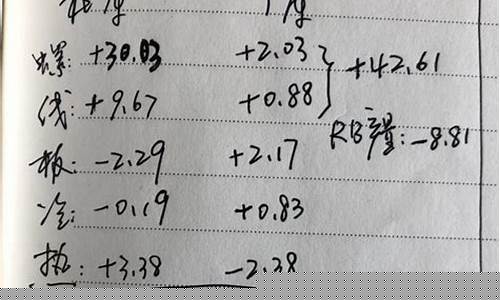 螺: +30.03 +2.03 } +42.61
线: +9.67 +0.88
RB产量: -8.81
板: -2.29 +2.17
冷: -0.19 +0.83
热: +3.38 -2.38